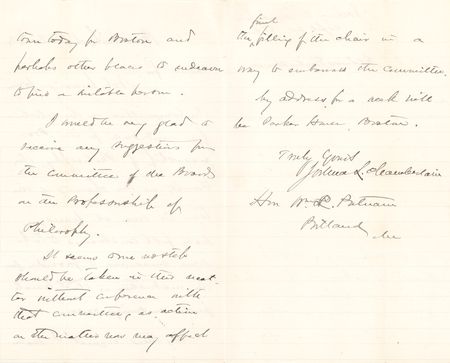 town today for Boston and
perhaps other places to endeavor
to find a suitable person.
I would be very glad to
receive any suggestions from
the Committee of the Boards
on the Professorship of
Philosophy.
It seems to me no step
should be taken in this mat-
ter without conference with
that committee, as action
on the matter now may affect
final
the filling of the chair in a
way to embarrass the committee.
My address for a week will
be Parker House, Boston.
Truly Yours
Joshua L. Chamberlain
Hon Wm L. Putnam
Portland
Me